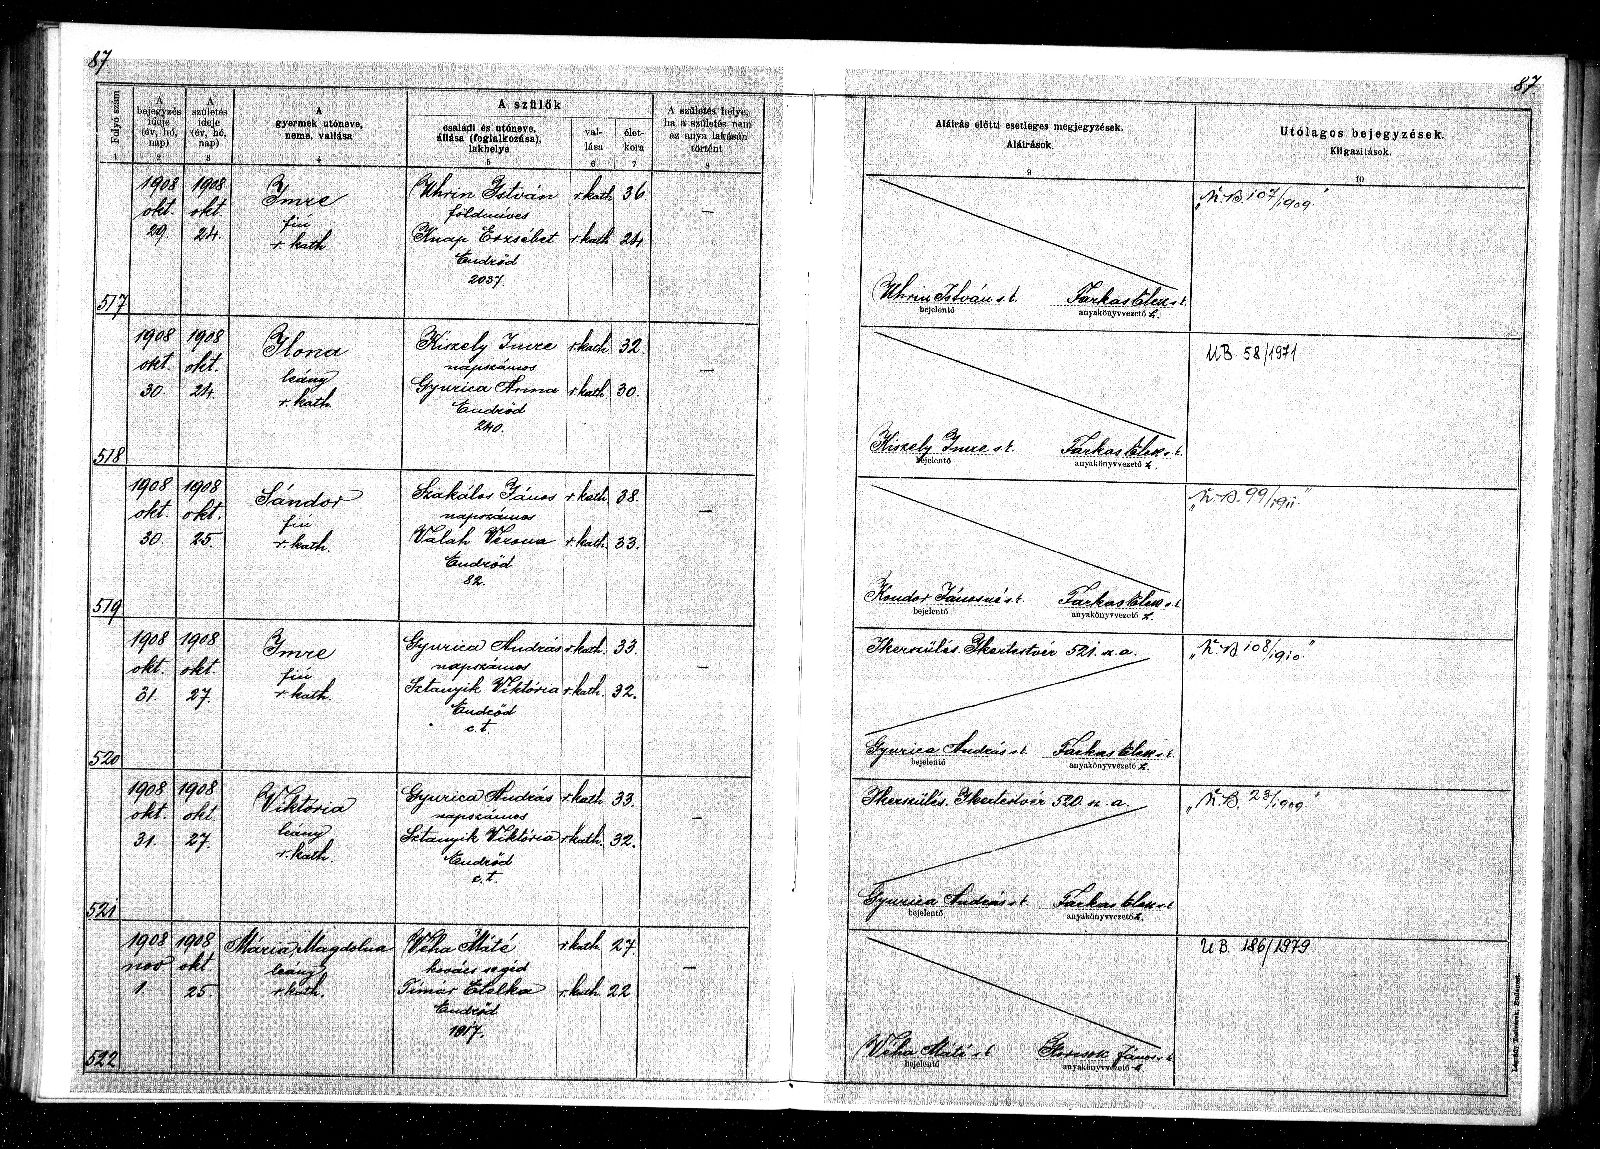 87
87
Folyó szám
A bejegyzés ideje (év, hó, nap)
A születés ideje (év, hó, nap)
A gyermek utóneve, neme, vallása
A szülők
családi és utóneve, állása (foglalkozása), lakhelye
vallása
életkora
A születés helye, ha a születés nem az anya lakásán történt
Aláírás előtti esetleges megjegyzések.
Aláírások.
Utólagos bejegyzések.
Kiigazítások.
1 2 3 4 5 6 7 8 9 10
517
1908 okt. 29
1908 okt. 24.
Imre
fiú
r. kath
Uhrin István r. kath 36
földmives
Knap Erzsébet r. kath 24
Endrőd
2037.
—
Uhrin István s.k. Farkas Elek s.k.
bejelentő anyakönyvvezető h.
"K.B. 107/1909"
518
1908 okt. 30
1908 okt. 24.
Ilona
leány
r. kath.
Kiszely Imre r. kath. 32.
napszámos
Gyurica Anna r. kath. 30.
Endrőd
240.
—
Kiszely Imre s.k. Farkas Elek s.k.
bejelentő anyakönyvvezető h.
UB. 58/1971
519
1908 okt. 30.
1908 okt. 25.
Sándor
fiú
r. kath.
Szakálos János r. kath. 38.
napszámos
Valah Verona r. kath. 33.
Endrőd
82.
—
Kondor Jánosné s.k. Farkas Elek s.k.
bejelentő anyakönyvvezető h.
"K.B. 99/1911."
520
1908 okt. 31.
1908 okt. 27.
Imre
fiú
r. kath.
Gyurica András r. kath. 33.
napszámos
Sztanyik Viktória r. kath. 32.
Endrőd
c. t.
—
Ikerszülés. Ikertestvér 521. sz. a.
Gyurica András s.k. Farkas Elek s.k.
bejelentő anyakönyvvezető h.
"K.B. 108/1910."
521
1908 okt. 31.
1908 okt. 27.
Viktória
leány
r. kath.
Gyurica András r. kath. 33.
napszámos
Sztanyik Viktória r. kath. 32.
Endrőd
c. t.
—
Ikerszülés. Ikertestvér 520. sz. a.
Gyurica András s.k. Farkas Elek s.k.
bejelentő anyakönyvvezető h.
"K.B. 23/1909."
522
1908 nov 1.
1908 okt 25.
Mária, Magdolna
leány
r. kath.
Véha Máté r. kath 27.
kovács segéd
Timár Etelka r. kath 22
Endrőd
1917.
—
Véha Máté s.k. János s.k.
bejelentő anyakönyvvezető h.
UB. 186/1979